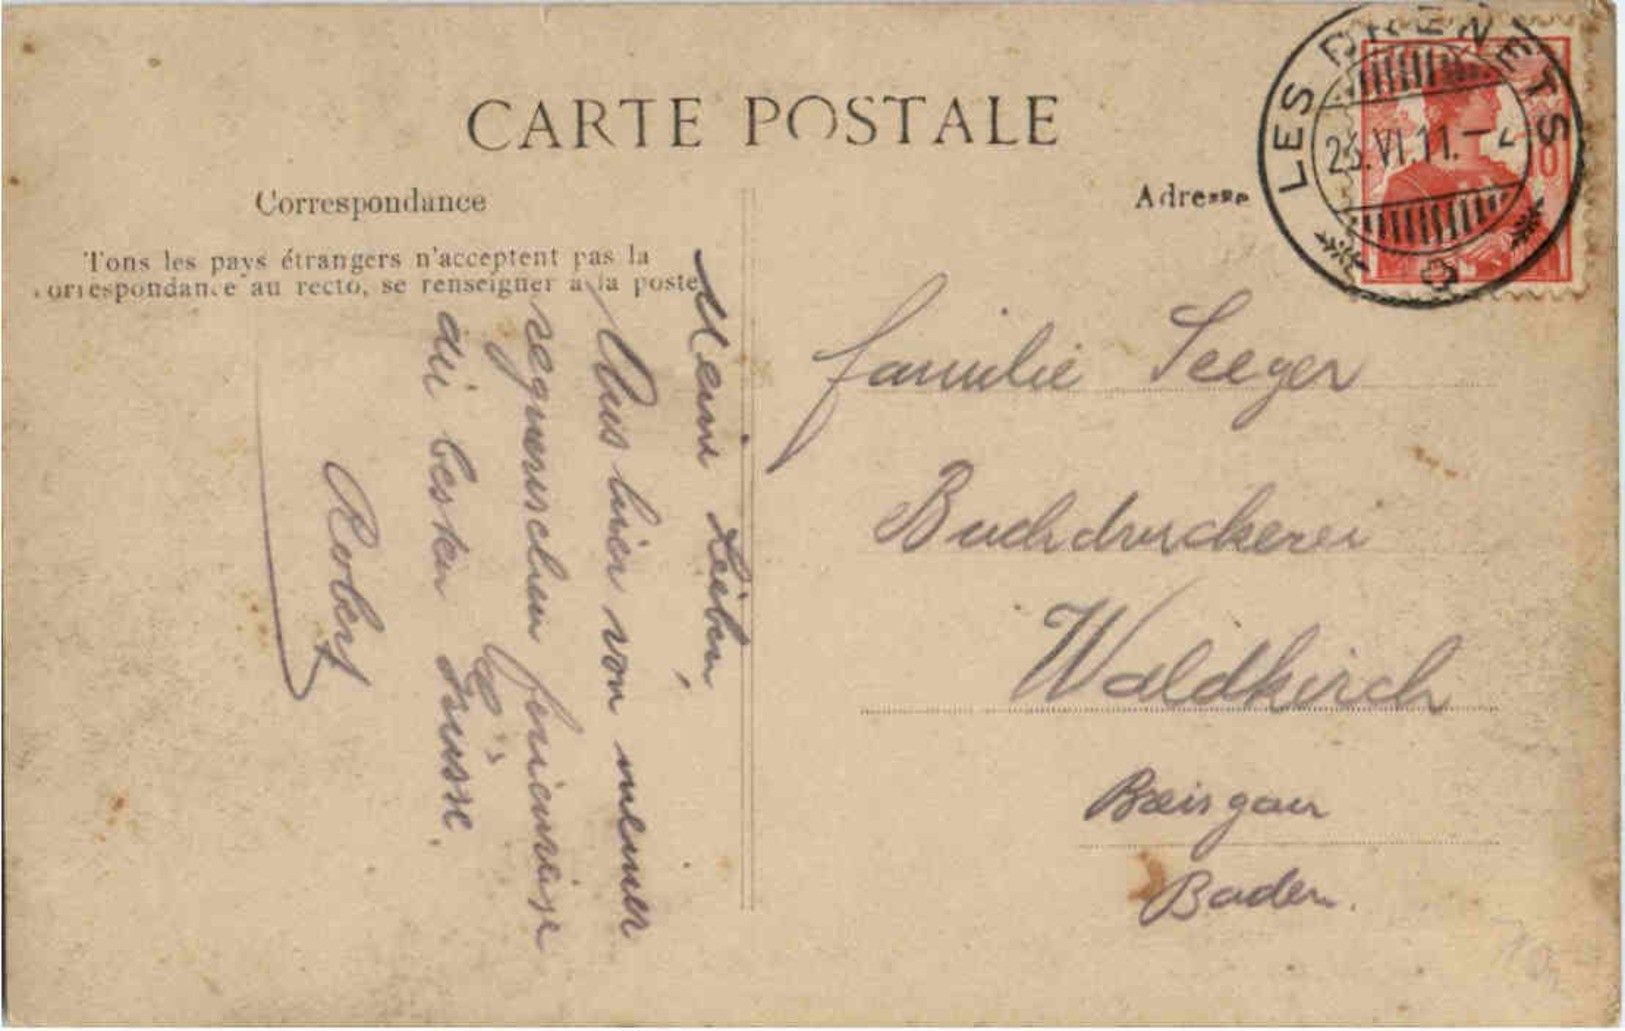 CARTE POSTALE
Correspondance
Adresse
Tous les pays étrangers n'acceptent pas la
correspondance au recto, se renseigner a la poste
LES BRENETS
23.VI.11.
10
Meine Lieben,
Aus hier von meiner
die besten Grüsse.
Robert
Familie Seeger
Buchdruckerei
Waldkirch
Breisgau
Baden.